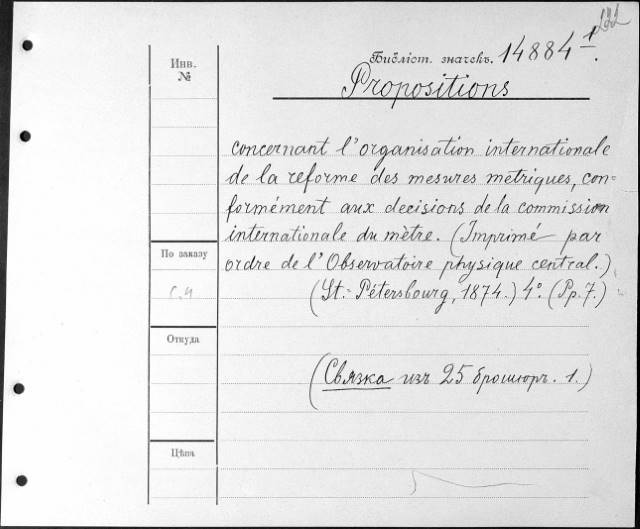 Инв.
№
Библіот. значекъ. 14884 1.
Propositions
concernant l'organisation internationale
de la reforme des mesures metriques, con=
formément aux decisions de la commission
internationale du mètre. (Imprimé par
По заказу
ordre de l'Observatoire physique central.)
с.ч
(St.=Pétersbourg, 1874.) 4º. (Pp. 7.)
Откуда
(Связка изъ 25 брошюръ. 1.)
Цѣна